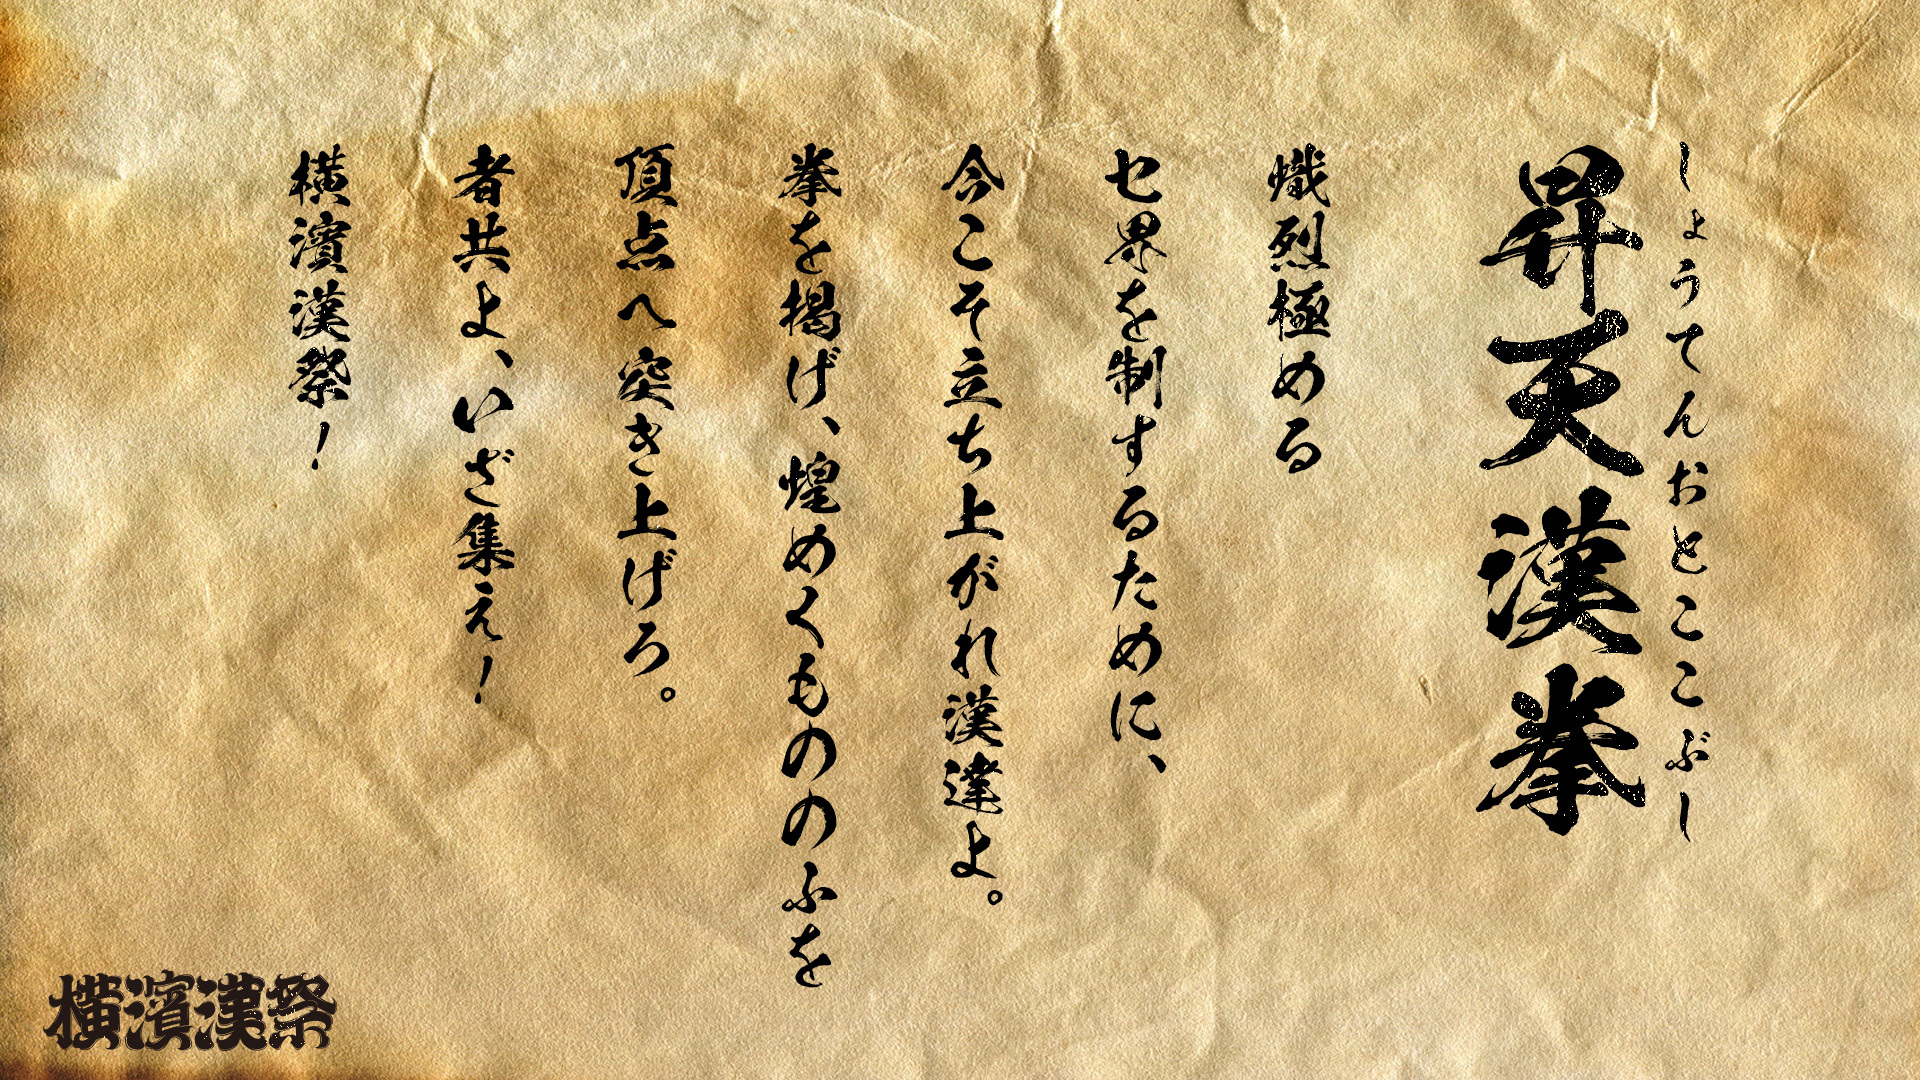 しょうてんおとここぶし
昇天漢拳
熾烈極める
セ界を制するために、
今こそ立ち上がれ漢達よ。
拳を掲げ、煌めくもののふを
頂点へ突き上げろ。
者共よ、いざ集え！
横濱漢祭！
横濱漢祭